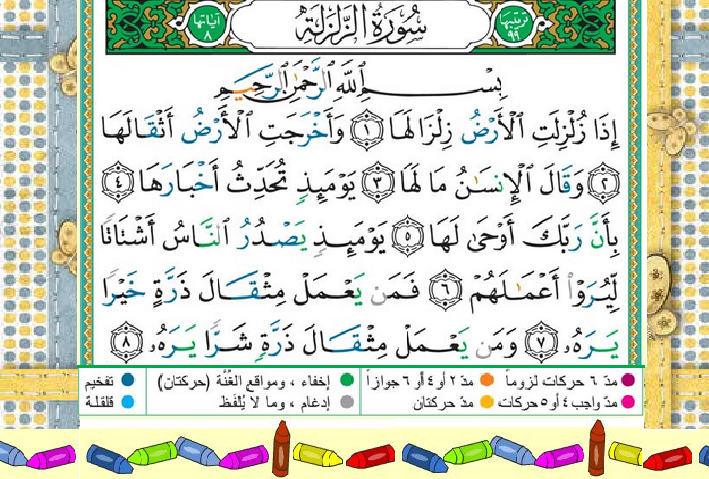 ترتيبها ٩٩ سُورَةُ الزَّلْزَلَةِ آياتها ٨
بِسْمِ ٱللَّهِ ٱلرَّحْمَٰنِ ٱلرَّحِيمِ
إِذَا زُلْزِلَتِ ٱلْأَرْضُ زِلْزَالَهَا ١ وَأَخْرَجَتِ ٱلْأَرْضُ أَثْقَالَهَا
٢ وَقَالَ ٱلْإِنسَٰنُ مَا لَهَا ٣ يَوْمَئِذٍ تُحَدِّثُ أَخْبَارَهَا ٤
بِأَنَّ رَبَّكَ أَوْحَىٰ لَهَا ٥ يَوْمَئِذٍ يَصْدُرُ ٱلنَّاسُ أَشْتَاتًا
لِّيُرَوْا۟ أَعْمَٰلَهُمْ ٦ فَمَن يَعْمَلْ مِثْقَالَ ذَرَّةٍ خَيْرًا
يَرَهُۥ ٧ وَمَن يَعْمَلْ مِثْقَالَ ذَرَّةٍ شَرًّا يَرَهُۥ ٨
مدّ ٦ حركات لزوماً مدّ ٢ أو ٤ أو ٦ جوازاً إخفاء، ومواقع الغُنَّة (حركتان) تفخيم
مدّ واجب ٤ أو ٥ حركات مدّ حركتان إدغام، وما لا يُلفَظ قلقلة